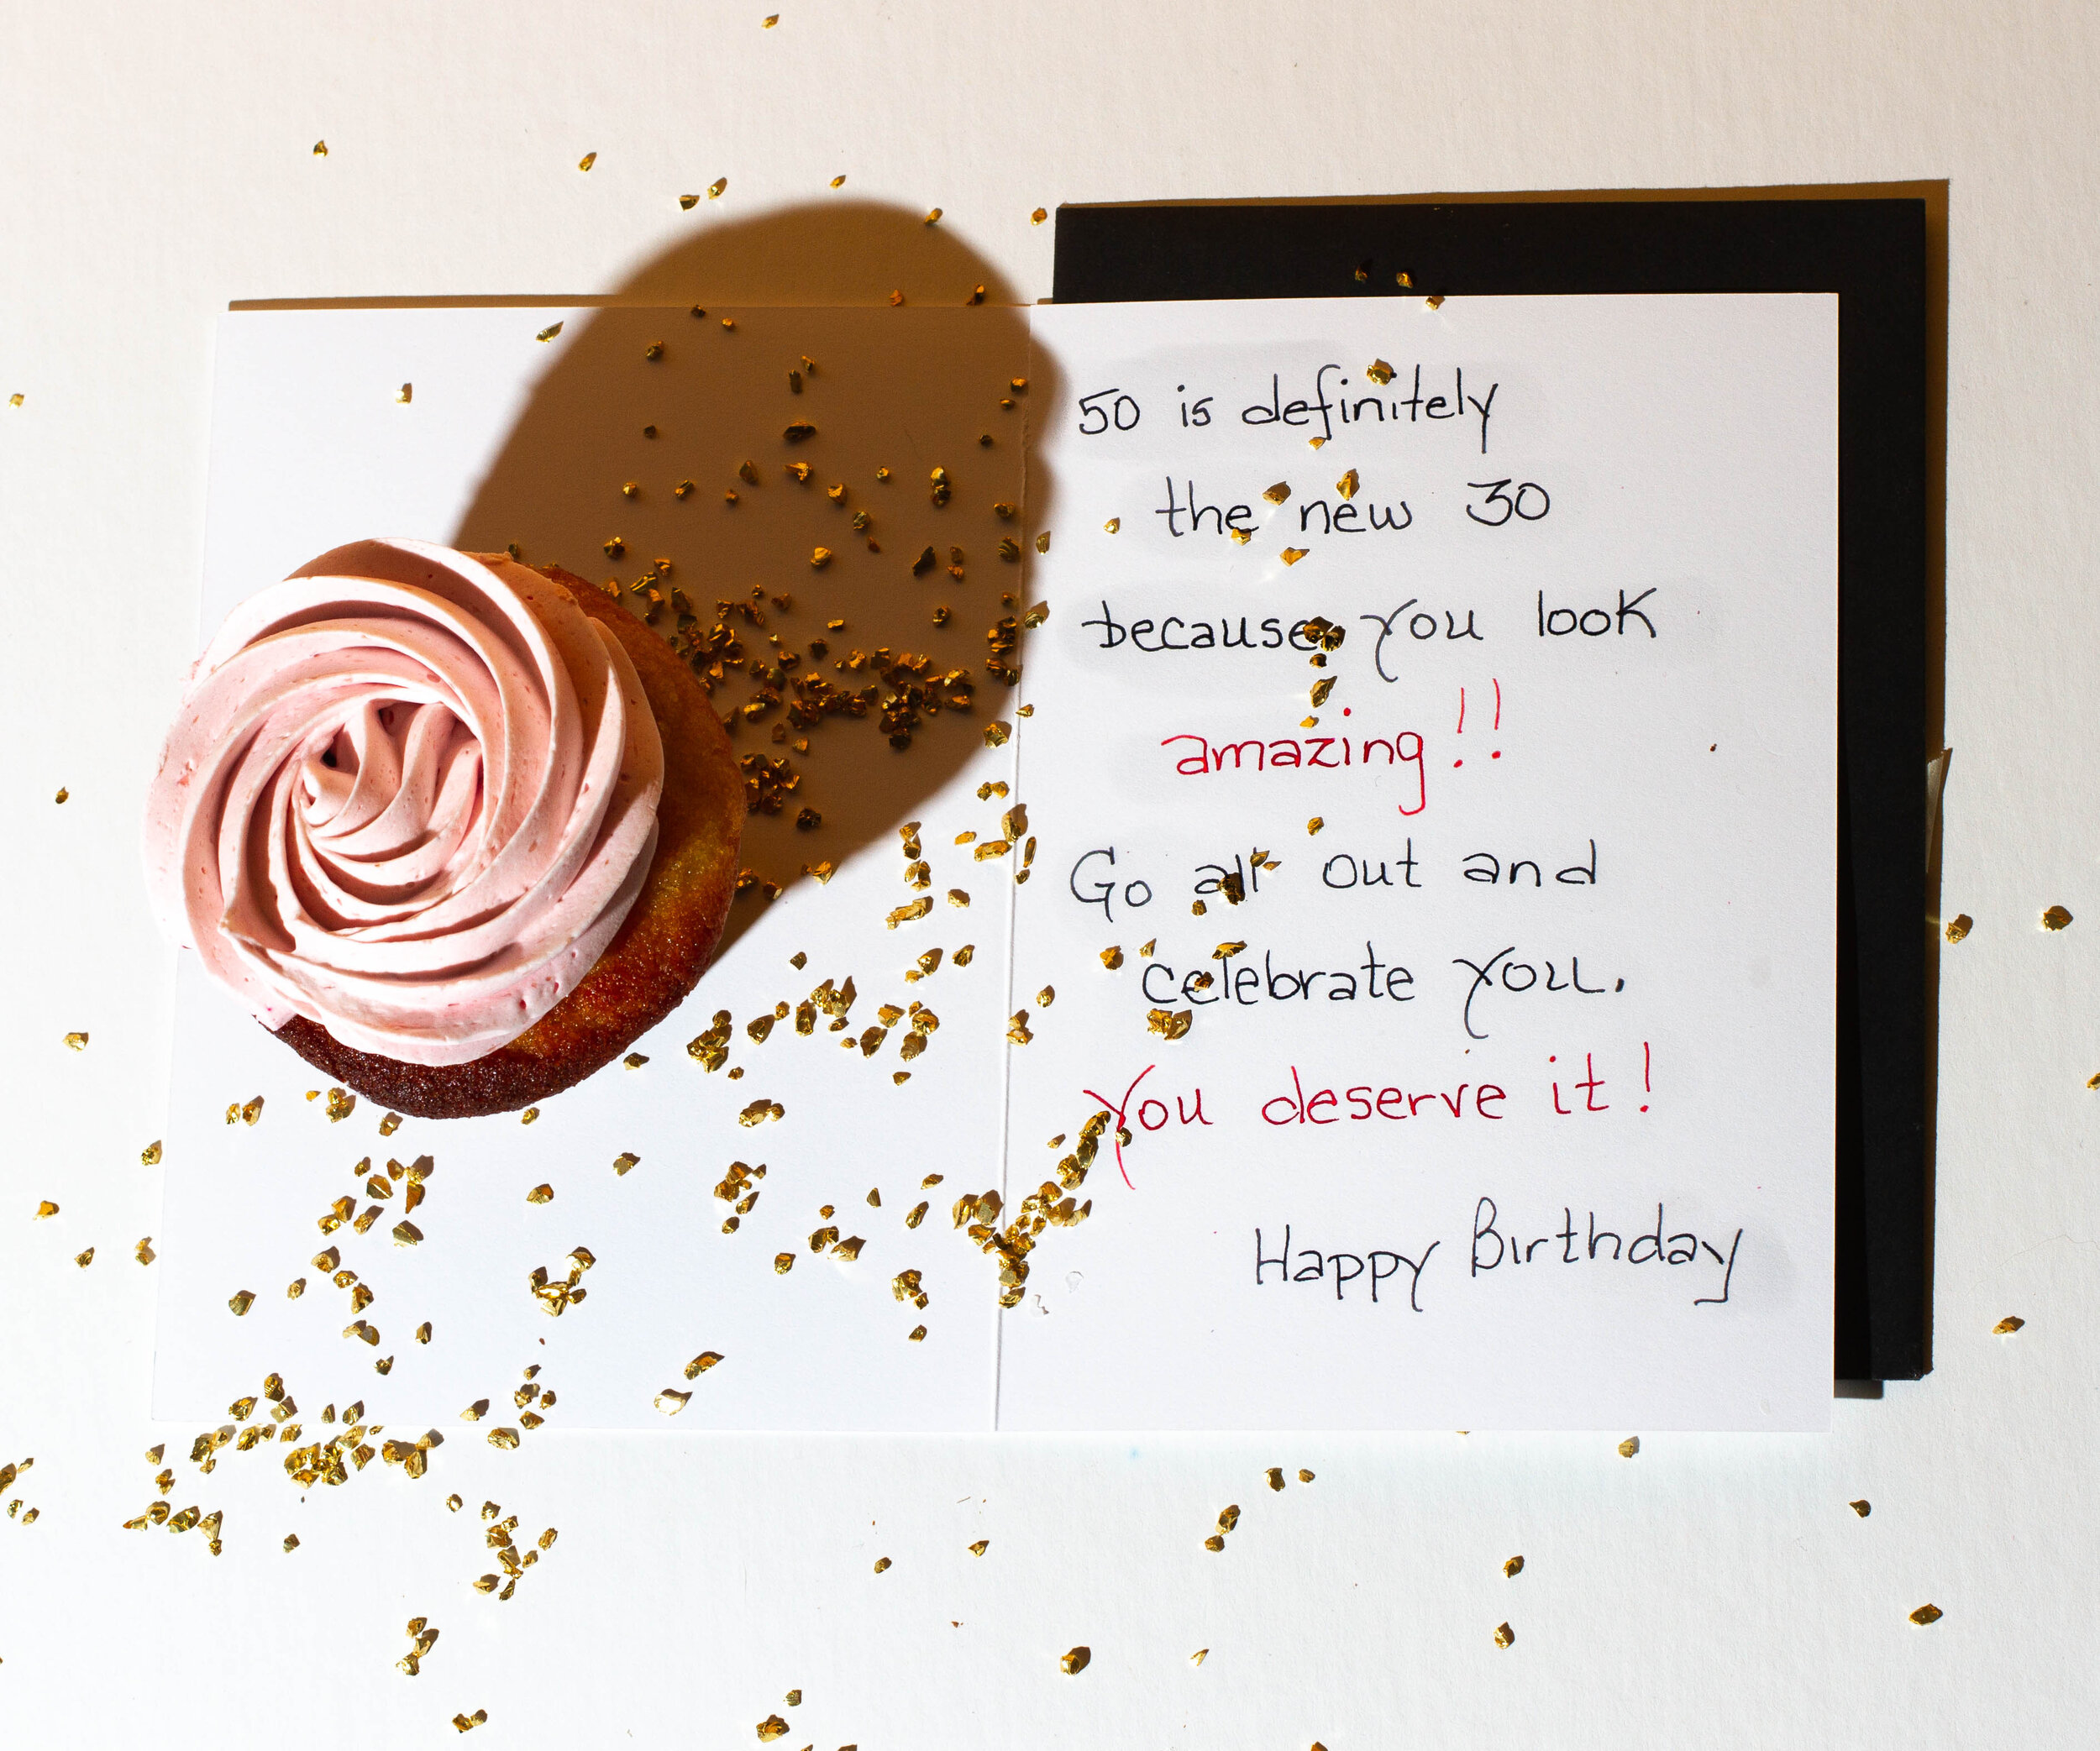 50 is definitely
the new 30
because you look
amazing!!
Go all out and
celebrate you.
You deserve it!
Happy Birthday